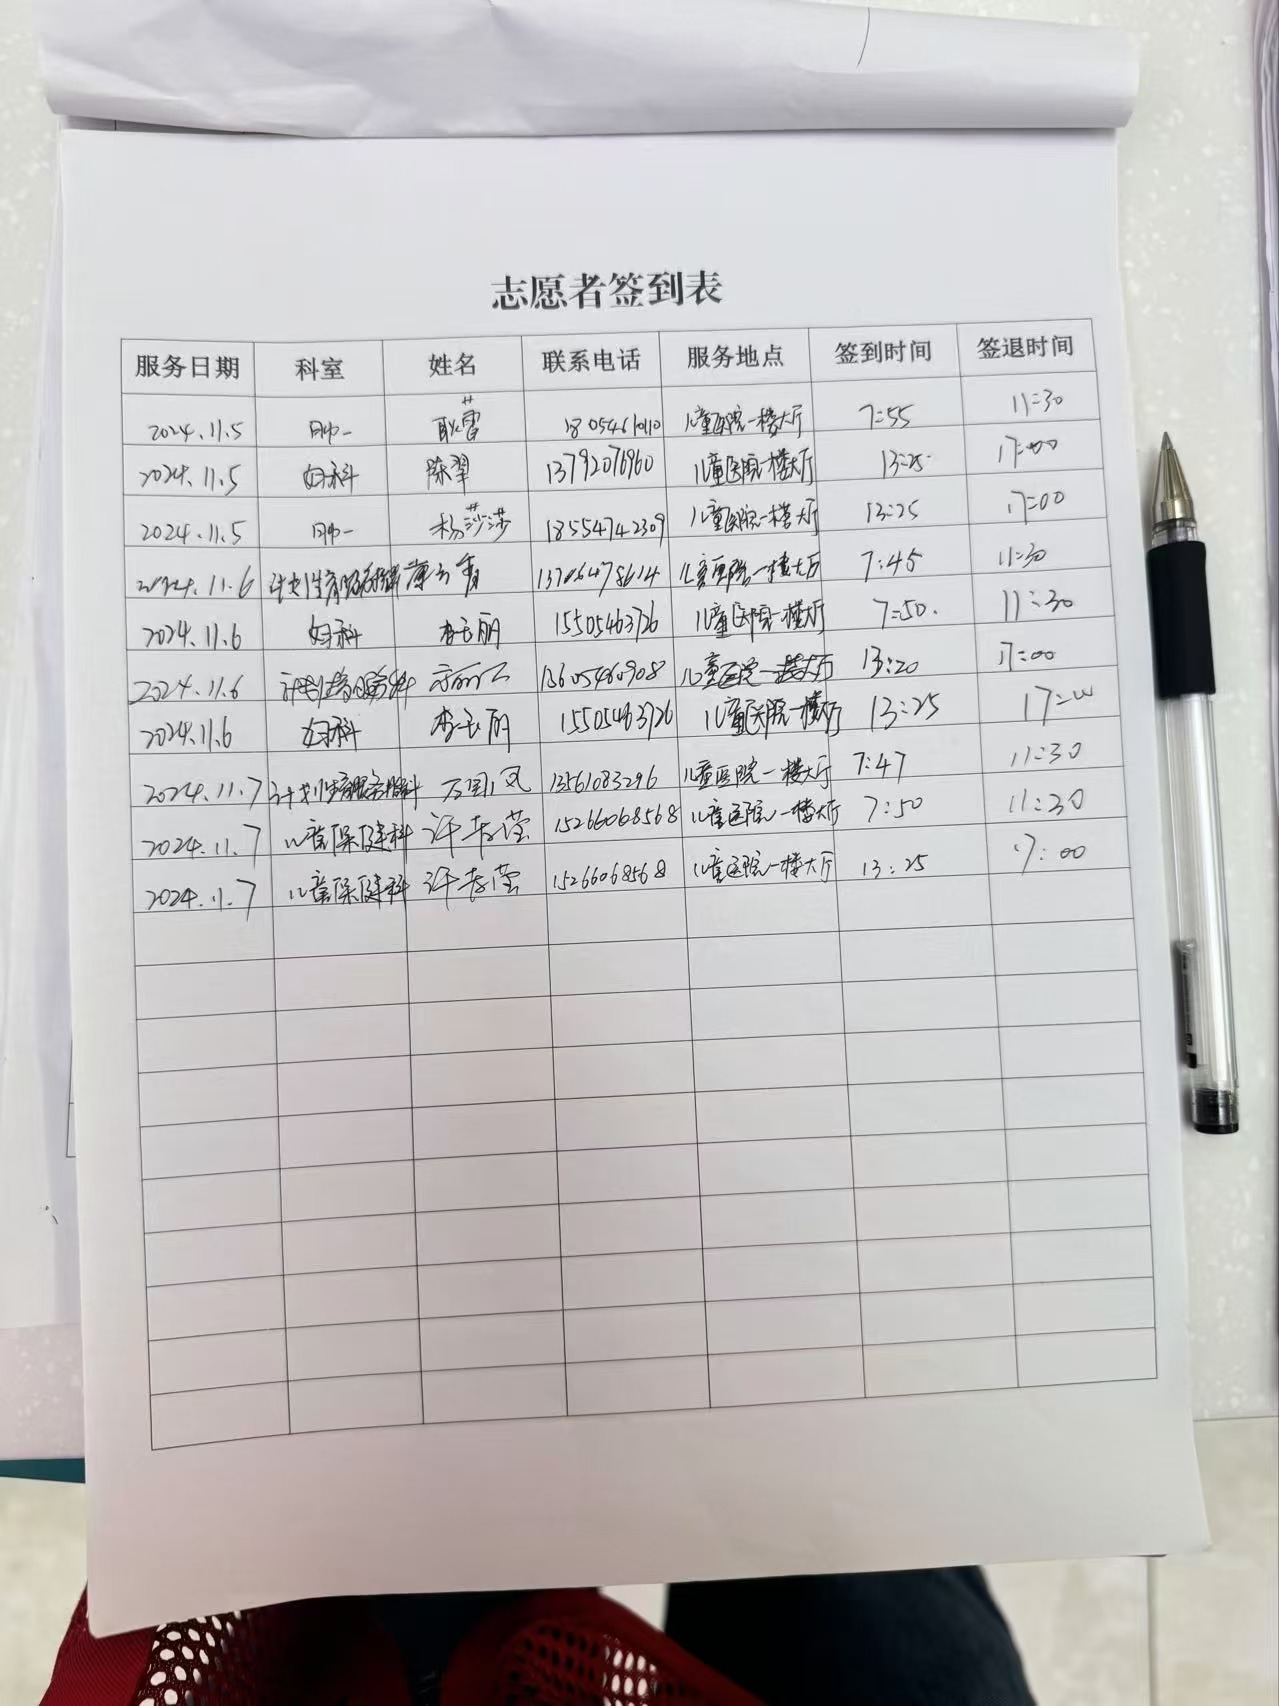 志愿者签到表
服务日期 科室 姓名 联系电话 服务地点 签到时间 签退时间
2024.11.5 耿蕾 儿童医院一楼大厅 7:55 11:30
2024.11.5 妇科 陈翠 13792076960 儿童医院一楼大厅 13:25 17:00
2024.11.5 杨莎莎 18554742309 儿童医院一楼大厅 13:25 17:00
2024.11.6 13706478614 儿童医院一楼大厅 7:45 11:30
2024.11.6 妇科 15505463726 儿童医院一楼大厅 7:50. 11:30
2024.11.6 13605460908 儿童医院一楼大厅 13:20 17:00
2024.11.6 妇科 15505463726 儿童医院一楼大厅 13:25 17:00
2024.11.7 13561083296 儿童医院一楼大厅 7:47 11:30
2024.11.7 儿童保健科 15266068568 儿童医院一楼大厅 7:50 11:30
2024.11.7 儿童保健科 15266068568 儿童医院一楼大厅 13:25 17:00